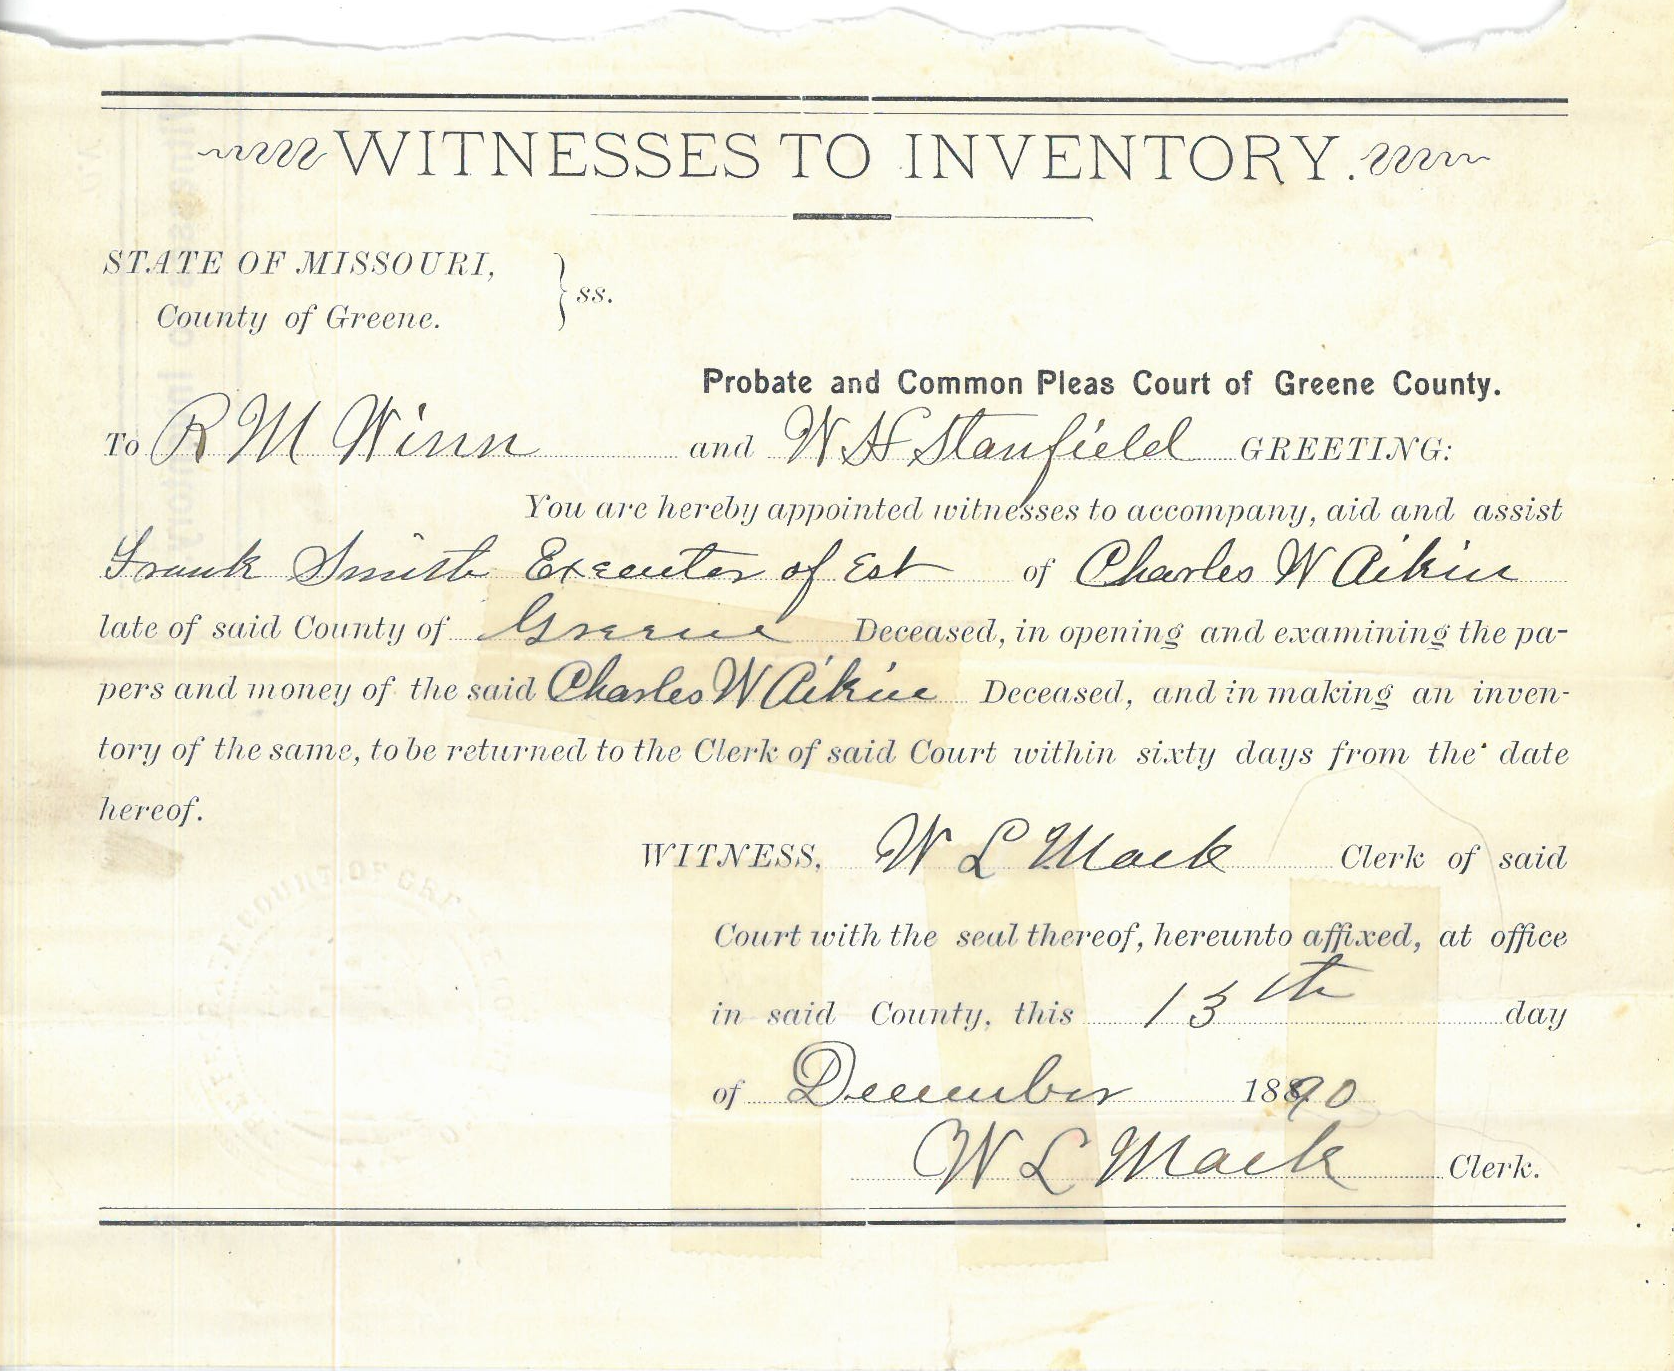 WITNESSES TO INVENTORY.
STATE OF MISSOURI,
County of Greene. } ss.
Probate and Common Pleas Court of Greene County.
To R M Winn and W H Stanfield GREETING:
You are hereby appointed witnesses to accompany, aid and assist
Frank Smith Executor of Est of Charles W Aikin
late of said County of Greene Deceased, in opening and examining the pa-
pers and money of the said Charles W Aikin Deceased, and in making an inven-
tory of the same, to be returned to the Clerk of said Court within sixty days from the date
hereof.
WITNESS, W L Mack Clerk of said
Court with the seal thereof, hereunto affixed, at office
in said County, this 13th day
of December 1890
W L Mack Clerk.
COURT OF GRE